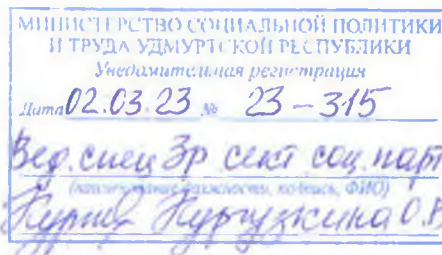 МИНИСТЕРСТВО СОЦИАЛЬНОЙ ПОЛИТИКИ
И ТРУДА УДМУРТСКОЙ РЕСПУБЛИКИ
Уведомительная регистрация
Дата 02.03.23 № 23-315
Вед. спец Эр сект соц. парт
(наименование должности, подпись, ФИО)
Кургузкина О.В